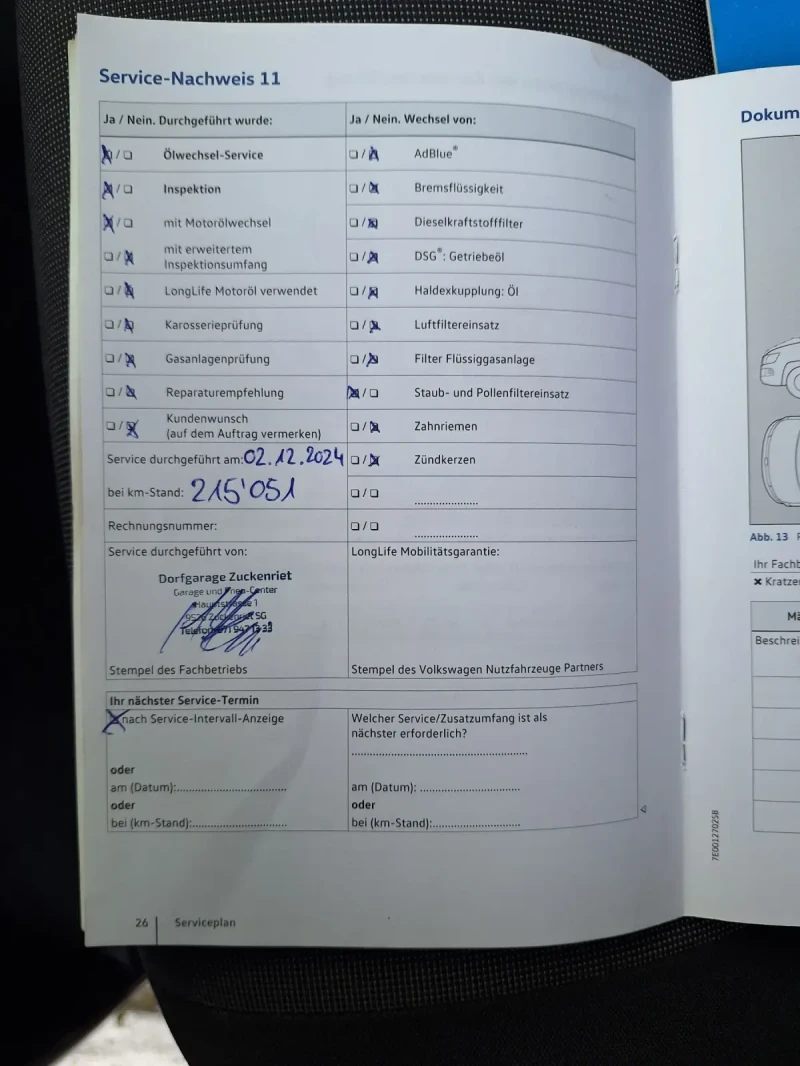 Service-Nachweis 11
Ja / Nein. Durchgeführt wurde:
Ölwechsel-Service
Inspektion
mit Motorölwechsel
mit erweitertem
Inspektionsumfang
LongLife Motoröl verwendet
Karosserieprüfung
Gasanlagenprüfung
Reparaturempfehlung
Kundenwunsch
(auf dem Auftrag vermerken)
Service durchgeführt am: 02.12.2024
bei km-Stand: 215'051
Rechnungsnummer:
Service durchgeführt von:
Dorfgarage Zuckenriet
Garage und Pneu-Center
Hauptstrasse 1
Zuckenriet SG
Telefon
Stempel des Fachbetriebs
Ja / Nein. Wechsel von:
AdBlue®
Bremsflüssigkeit
Dieselkraftstofffilter
DSG®: Getriebeöl
Haldexkupplung: Öl
Luftfiltereinsatz
Filter Flüssiggasanlage
Staub- und Pollenfiltereinsatz
Zahnriemen
Zündkerzen
LongLife Mobilitätsgarantie:
Stempel des Volkswagen Nutzfahrzeuge Partners
Ihr nächster Service-Termin
nach Service-Intervall-Anzeige
oder
am (Datum):
oder
bei (km-Stand):
Welcher Service/Zusatzumfang ist als
nächster erforderlich?
am (Datum):
oder
bei (km-Stand):
26 Serviceplan
Dokum
Abb. 13
Ihr Fachb
Kratze
Mä
Beschrei
7E0012702SB